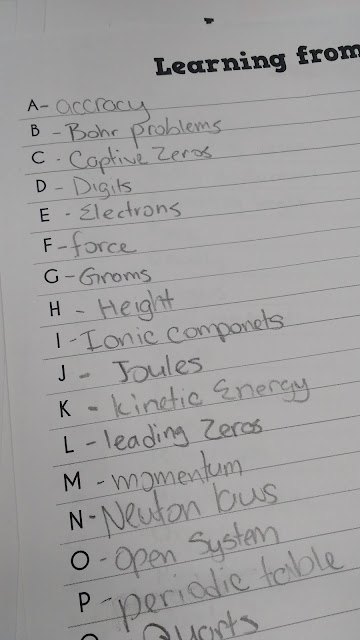 Learning from
A- accracy
B - Bohr problems
C - Captive Zeros
D - Digits
E - Electrons
F - force
G - Grams
H - Height
I - Ionic componets
J - Joules
K - kinetic Energy
L - leading Zeros
M - momentum
N - Neuton laws
O - Open System
P - periodic table
Quarts